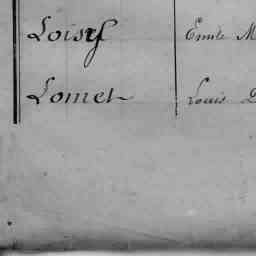 Loisy Emile M
Lomet Louis D